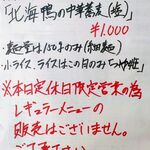 「北海鴨の中華蕎麦(塩)」
¥1,000
・麺量は150gのみ(細麺)
・小ライス、ライスはこの日のみつや姫
※本日定休日限定営業の為
レギュラーメニューの
販売はございません。